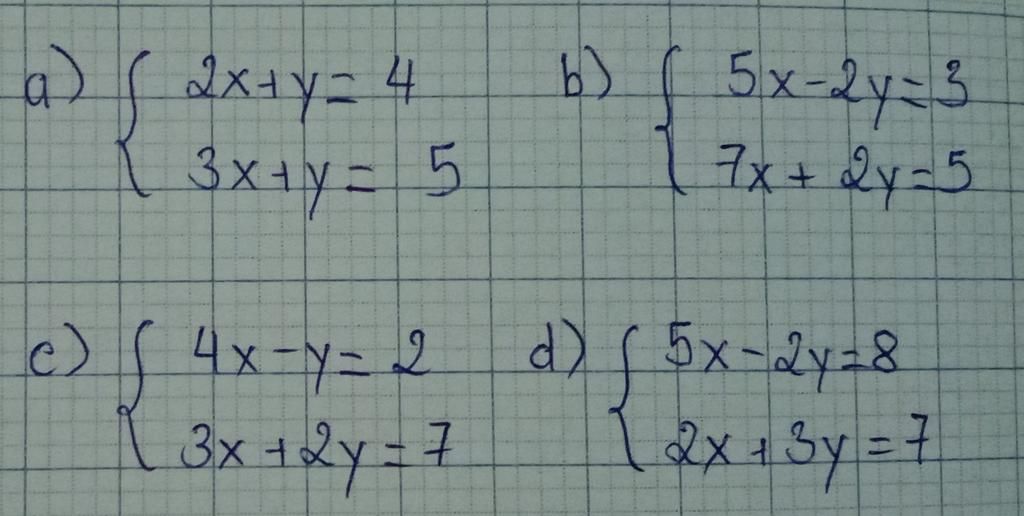 a) { 2x+y= 4
3x+y= 5
b) { 5x-2y=3
7x+2y=5
c) { 4x-y=2
3x+2y=7
d) { 5x-2y=8
2x+3y=7